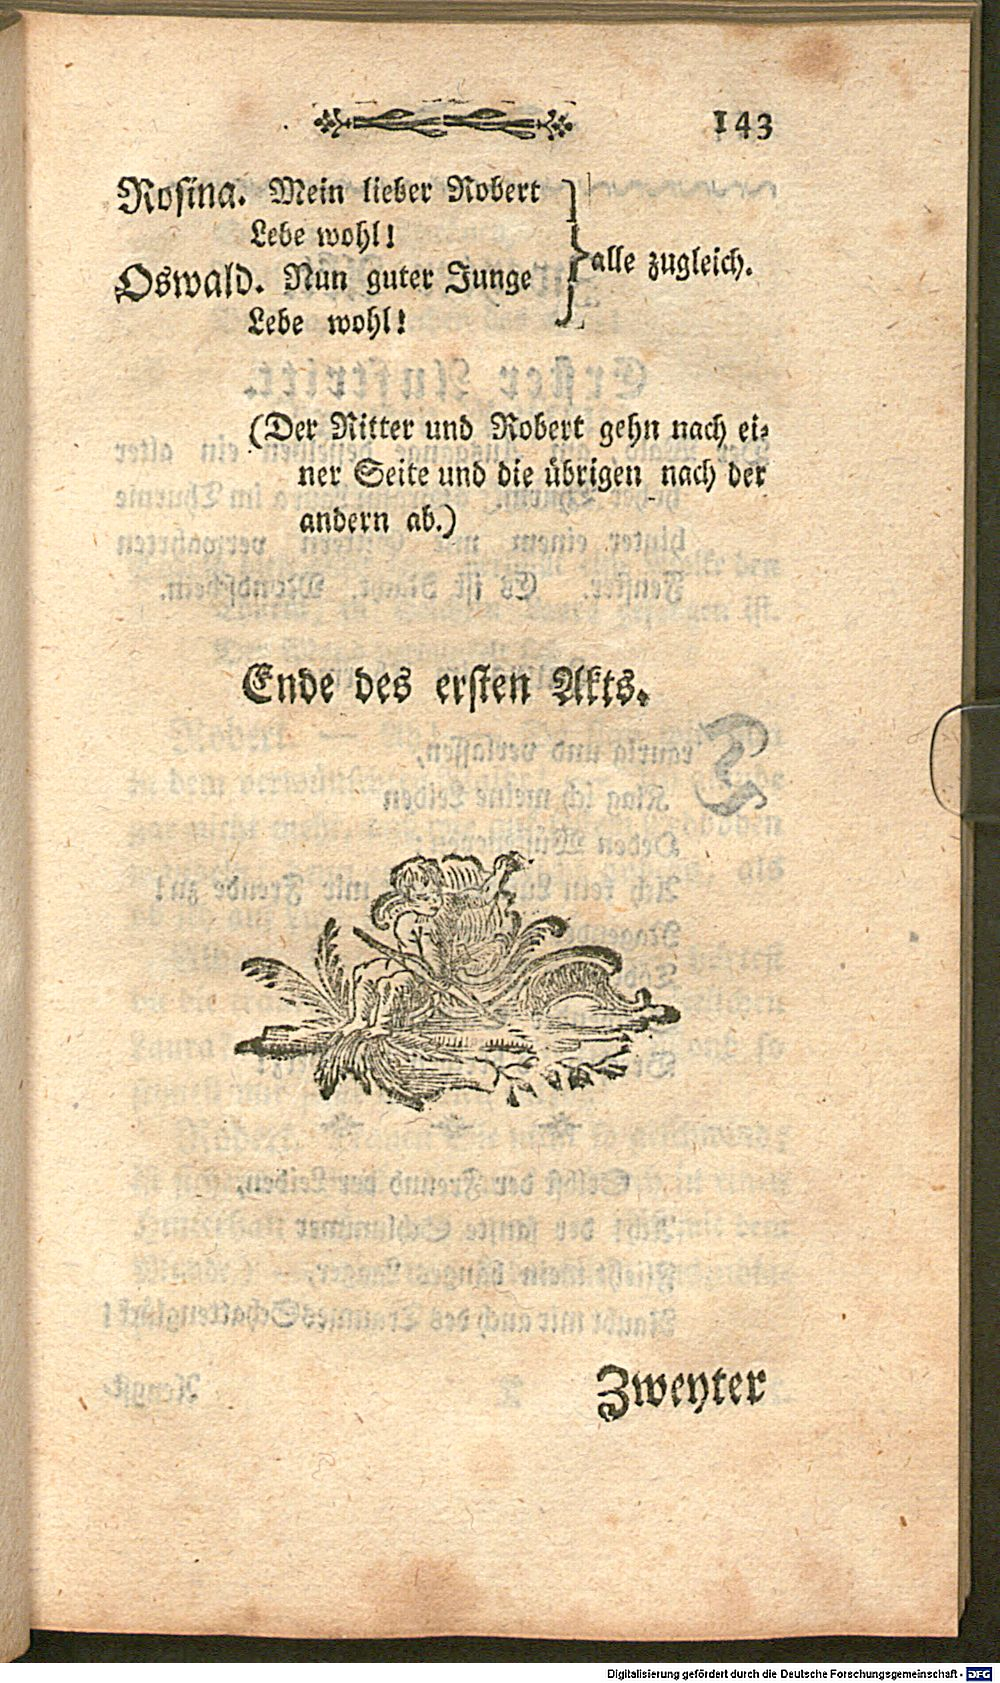 143
Rosina. Mein lieber Robert
Lebe wohl!
Oswald. Nun guter Junge
Lebe wohl!
alle zugleich.
(Der Ritter und Robert gehn nach ei-
ner Seite und die übrigen nach der
andern ab.)
Ende des ersten Akts.
Zweyter
Digitalisierung gefördert durch die Deutsche Forschungsgemeinschaft - DFG